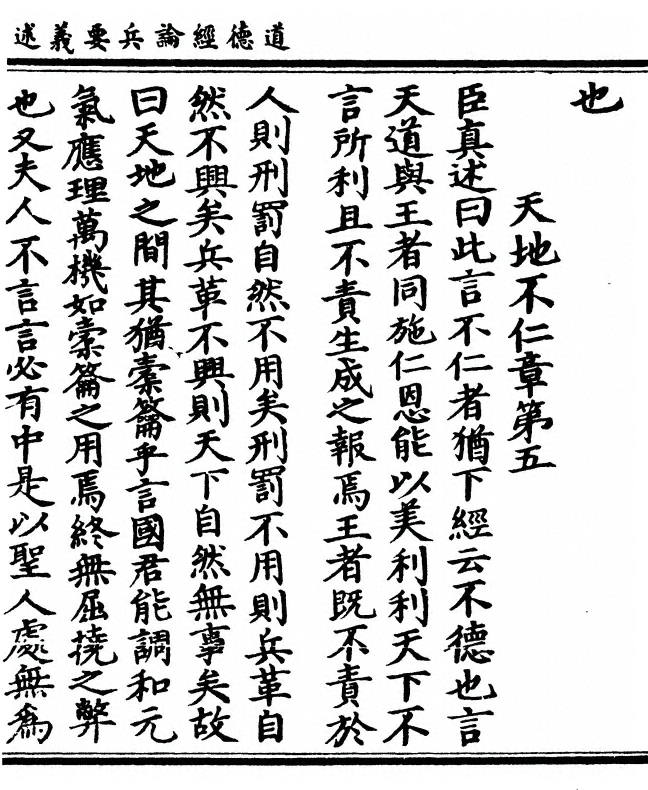 道德經論兵要義述
也
天地不仁章第五
臣真述曰此言不仁者猶下經云不德也言
天道與王者同施仁恩能以美利利天下不
言所利且不責生成之報焉王者既不責於
人則刑罰自然不用矣刑罰不用則兵革自
然不興矣兵革不興則天下自然無事矣故
曰天地之間其猶橐籥乎言國君能調和元
氣應理萬機如橐籥之用焉終無屈撓之弊
也又夫人不言言必有中是以聖人處無為